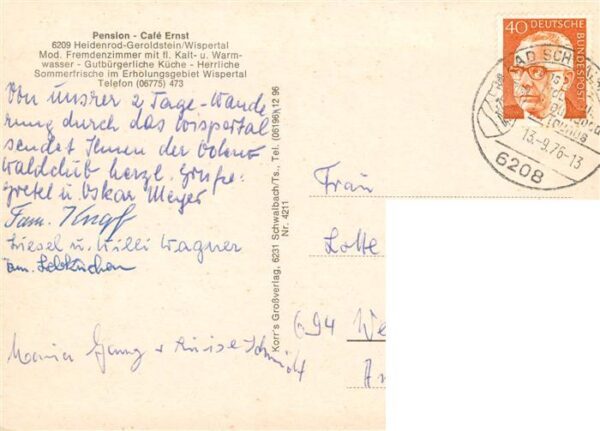 Pension - Café Ernst
6209 Heidenrod-Geroldstein/Wispertal
Mod. Fremdenzimmer mit fl. Kalt- u. Warm-
wasser - Gutbürgerliche Küche - Herrliche
Sommerfrische im Erholungsgebiet Wispertal
Telefon (06775) 473
Von unsrer 2 Tage-Wande
rung durch das Wispertal
sendet Ihnen der Odenw
waldclub herzl. Grüße
gretel u. Oskar Meyer
Fam. Knapf
Liesel u. Willi Wagner
Maria Gang + Luise Schmidt
Korr's Großverlag, 6231 Schwalbach/Ts., Tel. (06196) 12 96
Nr. 4211
40 DEUTSCHE
BUNDESPOST
BAD SCHWAL
13.-9.76-13
6208
Frau
Lotte
694 We